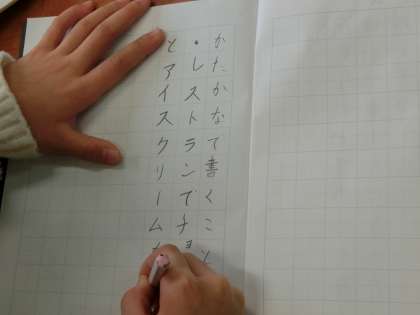 かたかなて書くこと
・レストランでチ
とアイスクリーム